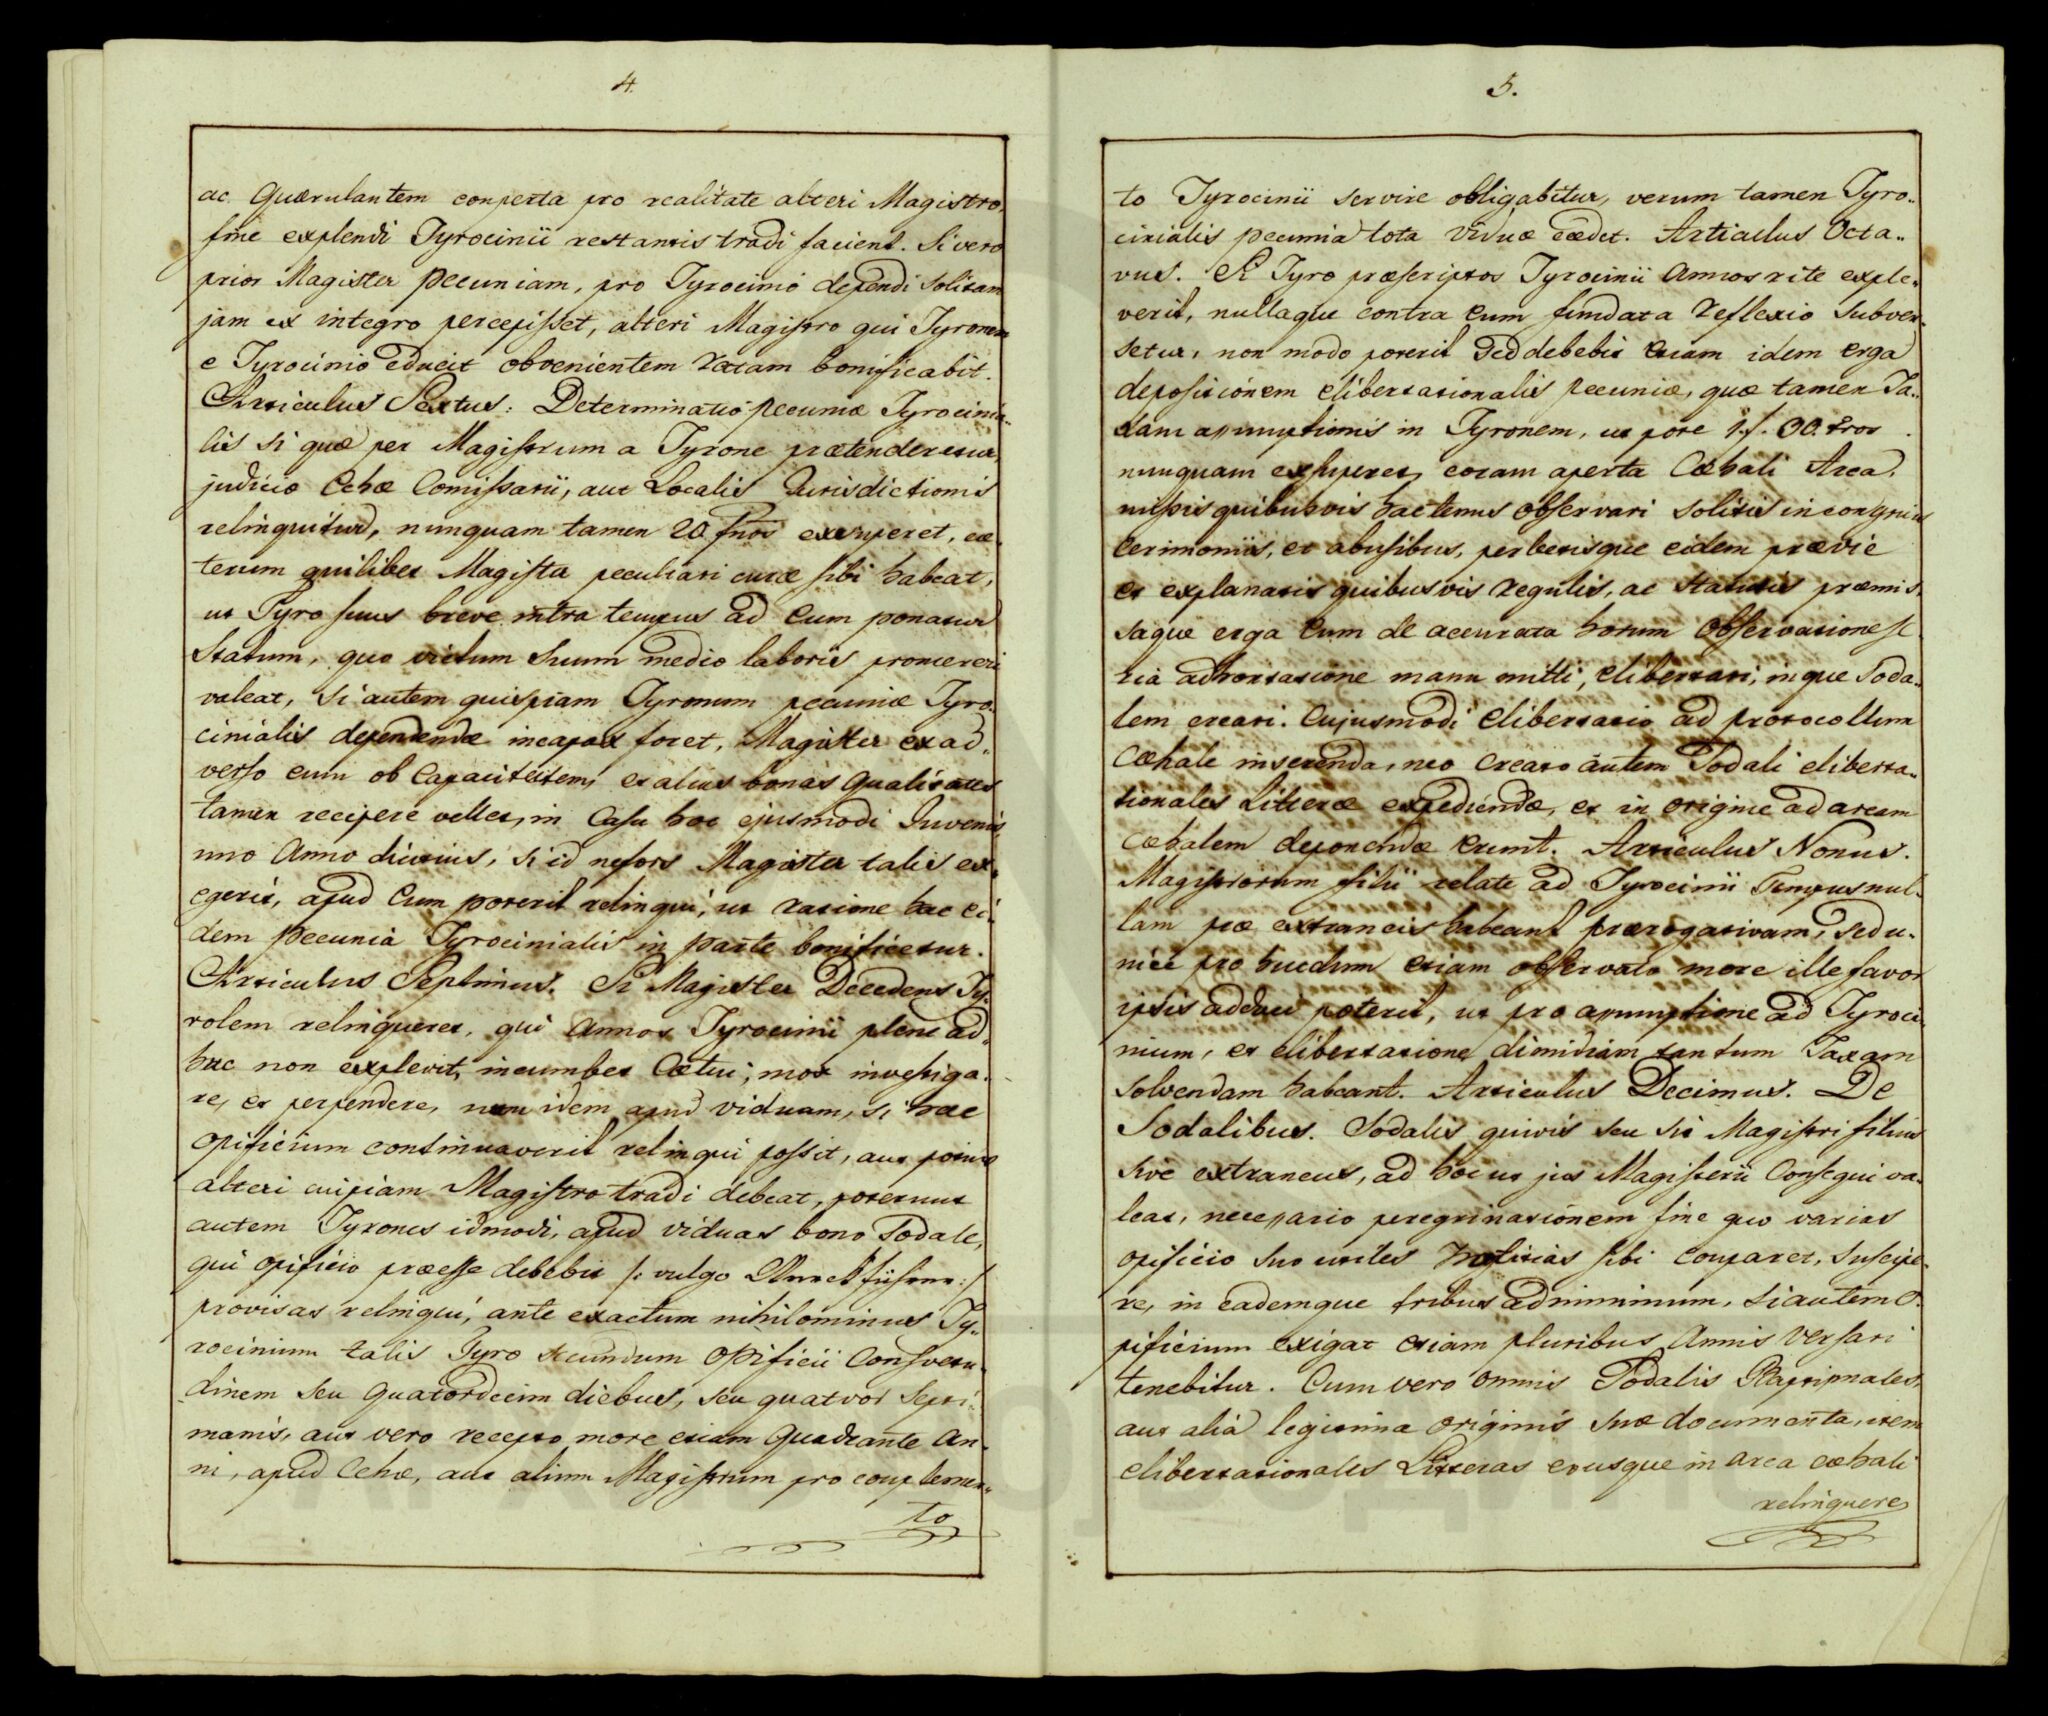 4.
ac Quærulantem conperta pro realitate alteri Magistro,
fine explendi Tyrocinii restantis tradi facient. Si vero
prior Magister pecuniam, pro Tyrocinio dependi solitam
jam ex integro percepisset, alteri Magistro qui Tyronem
e Tyrocinio educit obvenientem ratam bonificabit.
Articulus Sextus: Determinatio pecuniæ Tyrocinia„
lis si quæ per Magistrum a Tyrone prætenderetur,
judicio Cehæ Comissarii, aut Localis Jurisdictionis
relinquitur, nunquam tamen 20 fnos exsuperet, cæ„
terum quilibet Magister peculiari curæ sibi habeat,
ut Tyro suus breve intra tempus ad eum ponatur
Statum, quo victum suum medio laboris promereri
valeat, si autem quispiam Tyronum pecuniæ Tyro„
cinialis dependendæ incapax foret, Magister ex ad„
verso eum ob Capacitatem, et alias bonas qualitates
tamen recipere vellet, in Casu hoc ejusmodi Juvenis
uno Anno diutius, si id nefors Magister talis ex„
egerit, apud Eum poterit relinqui, ut ratione hac ei„
dem pecunia Tyrocinialis in parte bonificetur.
Articulus Septimus. Si Magister Decedens Ty„
rolem relinqueret, qui Annos Tyrocinii plene ad„
huc non explevit, incumbet Cætui, mox investiga„
re, et perpendere, num idem apud viduam, si hæc
opificium continuaverit relinqui possit, aut potius
alteri cuipiam Magistro tradi debeat, poterunt
autem Tyrones idmodi, apud viduas bono Sodale,
qui opificio præesse debebit /: vulgo :/
provisas relinqui, ante exactum nihilominus Ty„
rocinium talis Tyro secundum opificii Consvetu„
dinem seu quatordecim diebus, seu quatvor Septi„
manis, aut vero recepto more etiam quadrante An„
ni, apud Cehæ, aut alium Magistrum pro complemen„
to
5.
to Tyrocinii servire obligabitur, verum tamen Tyro„
cinialis pecunia tota viduæ cædet. Articulus Octa„
vus. Si Tyro præscriptos Tyrocinii Annos rite exple„
verit, nullaque contra eum fundata reflexio subver„
setur, non modo poterit sed debebit etiam idem erga
depositionem elibertationalis pecuniæ, quæ tamen Ta„
xam assumptionis in Tyronem, ut pote 1 f. 30. xros
nunquam exsuperet, coram aperta Cæhali Arca,
missis quibusvis hactenus observari solitis incongruis
Cerimoniis, et abusibus, perlectisque eidem prævie
et explanatis quibusvis regulis, ac statutis præmis„
saque erga Eum de accurata horum observatione se„
ria adhortatione manu mitti, elibertari, inque Soda„
lem creari. Cujusmodi elibertatio ad protocollum
Cæhale inserenda, neo creato autem Sodali eliberta„
tionales Litteræ expediendæ, et in origine ad arcam
Cæhalem deponendæ erunt. Articulus Nonus.
Magistrorum filii relate ad Tyrocinii Tempus nul„
lam præ extraneis habeant prærogativam, sed u„
nice pro hucdum etiam observato more ille favor
ipsis adduci poterit, ut pro assumptione ad Tyroci„
nium, et elibertatione dimidiam tantum Taxam
solvendam habeant. Articulus Decimus. De
Sodalibus. Sodalis quivis seu sit Magistri filius
sive extraneus, ad hoc ut jus Magisterii Consequi va„
leat, necessario peregrinationem fine quo varias
opificio suo utiles notitias sibi comparet, suscipe„
re, in eademque tribus ad minimum, si autem o„
pificium exigat etiam pluribus Annis versari
tenebitur. Cum vero omnis Sodalis Baptismales,
aut alia legitima originis suæ documenta, item
elibertationales Litteras eousque in arca cæhali
relinquere